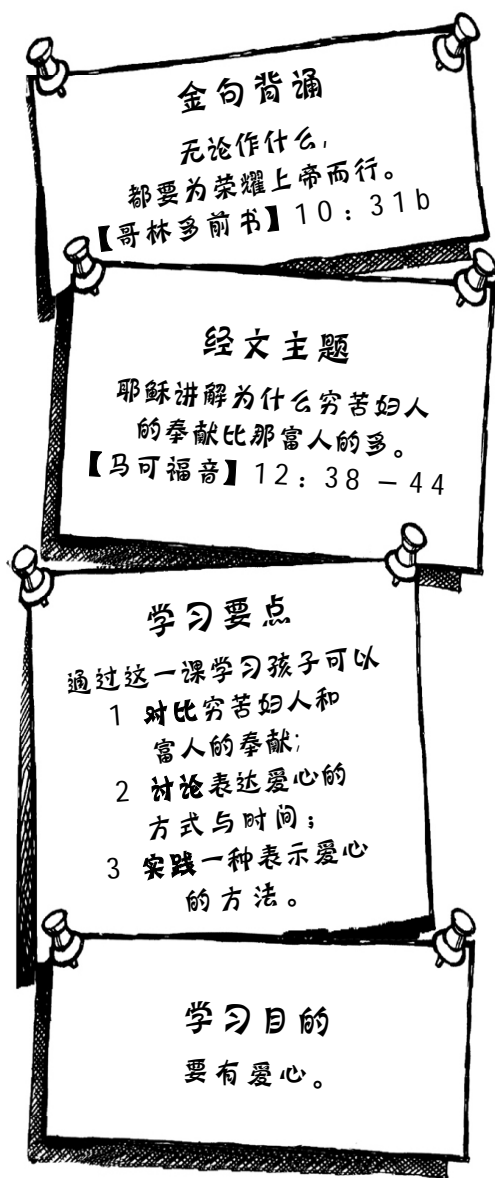 金句背诵
无论作什么,
都要为荣耀上帝而行。
【哥林多前书】10：31b
经文主题
耶稣讲解为什么穷苦妇人
的奉献比那富人的多。
【马可福音】12：38－44
学习要点
通过这一课学习孩子可以
1 对比穷苦妇人和
富人的奉献;
2 讨论表达爱心的
方式与时间；
3 实践一种表示爱心
的方法。
学习目的
要有爱心。